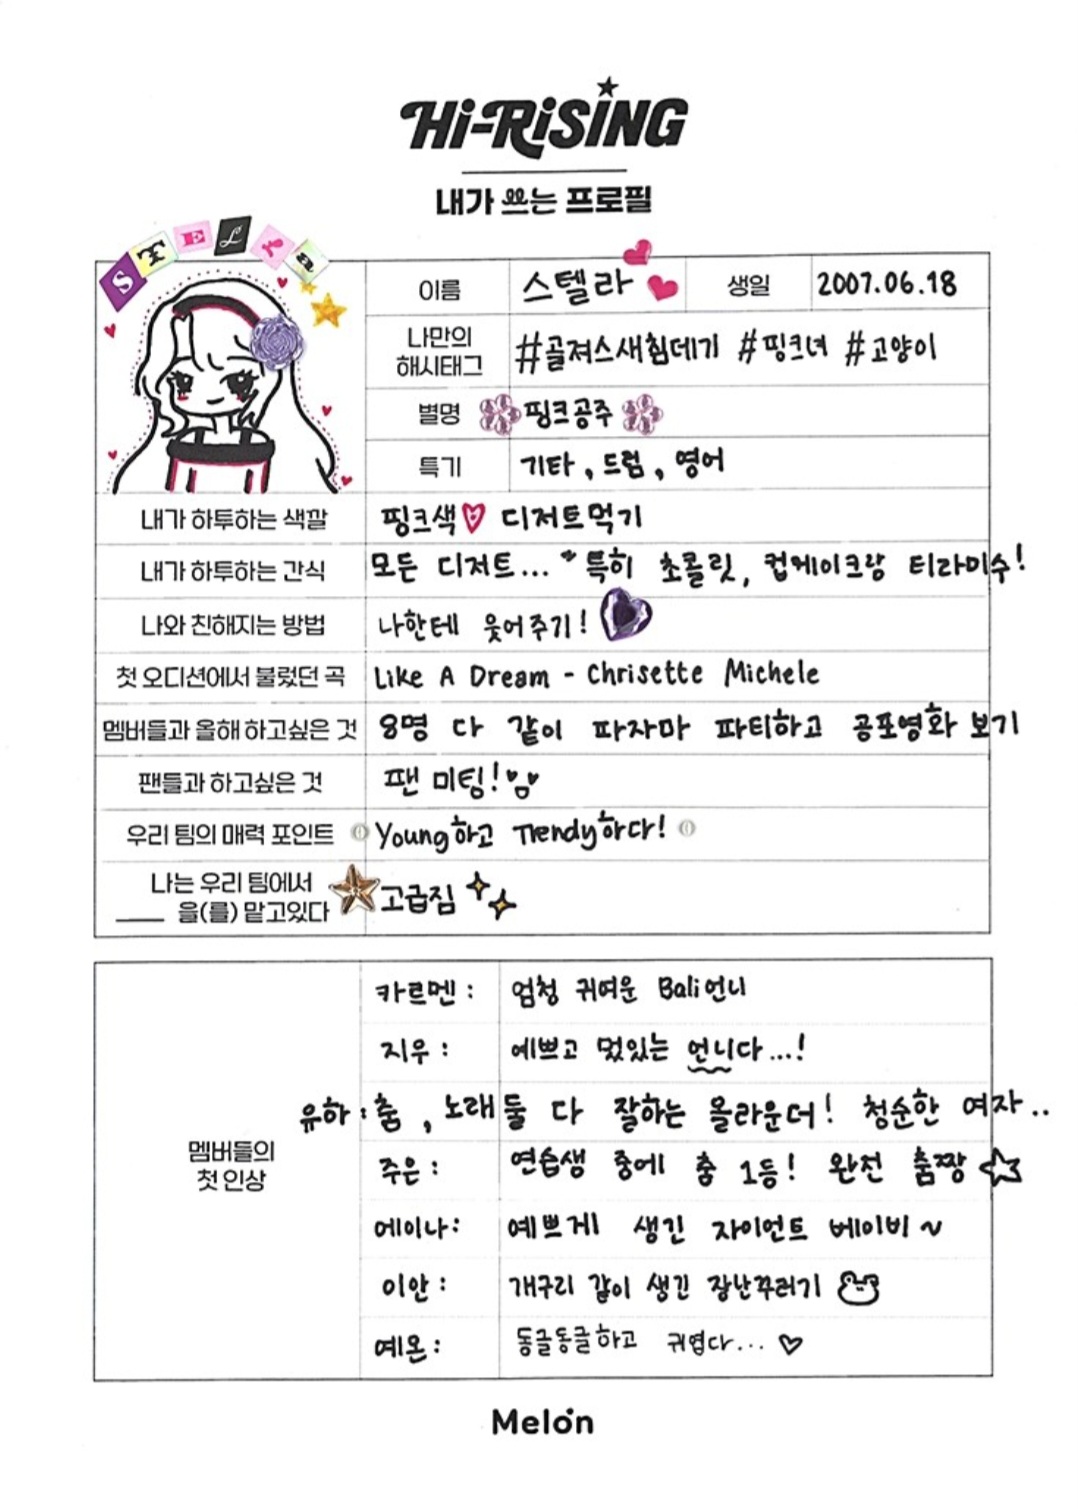 Hi-RiSiNG
내가 쓰는 프로필
STELLA
이름 스텔라 생일 2007.06.18
나만의
해시태그 #골져스새침데기 #핑크녀 #고양이
별명 핑크공주
특기 기타, 드럼, 영어
내가 하투하는 색깔 핑크색♡ 디저트먹기
내가 하투하는 간식 모든 디저트... 특히 초콜릿, 컵케이크랑 티라미수!
나와 친해지는 방법 나한테 웃어주기!
첫 오디션에서 불렀던 곡 Like A Dream - Chrisette Michele
멤버들과 올해 하고싶은 것 8명 다 같이 파자마 파티하고 공포영화 보기
팬들과 하고싶은 것 팬 미팅!
우리 팀의 매력 포인트 Young하고 Trendy하다!
나는 우리 팀에서
____ 을(를) 맡고있다 고급짐
멤버들의
첫 인상
카르멘: 엄청 귀여운 Bali언니
지우: 예쁘고 멌있는 언니다...!
유하: 춤, 노래 둘 다 잘하는 올라운더! 청순한 여자..
주은: 연습생 중에 춤 1등! 완전 춤짱☆
에이나: 예쁘게 생긴 자이언트 베이비~
이안: 개구리 같이 생긴 장난꾸러기
예온: 동글동글하고 귀엽다...♡
Melon